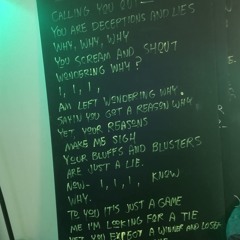 CALLING YOU OUT
YOU ARE DECEPTIONS AND LIES
WHY, WHY, WHY
YOU SCREAM AND, SHOUT
WONDERING WHY?
I, I, I,
AM LEFT WONDERING WHY.
SAYIN YOU GOT A REASON WHY
YET YOUR REASONS
MAKE ME SIGH
YOUR BLUFFS AND BLUSTERS
ARE JUST A LIE.
NOW- I, I, I, KNOW
WHY.
TO YOU IT'S JUST A GAME
ME I'M LOOKING FOR A TIE
YET YOU EXPECT A WINNER AND LOSER